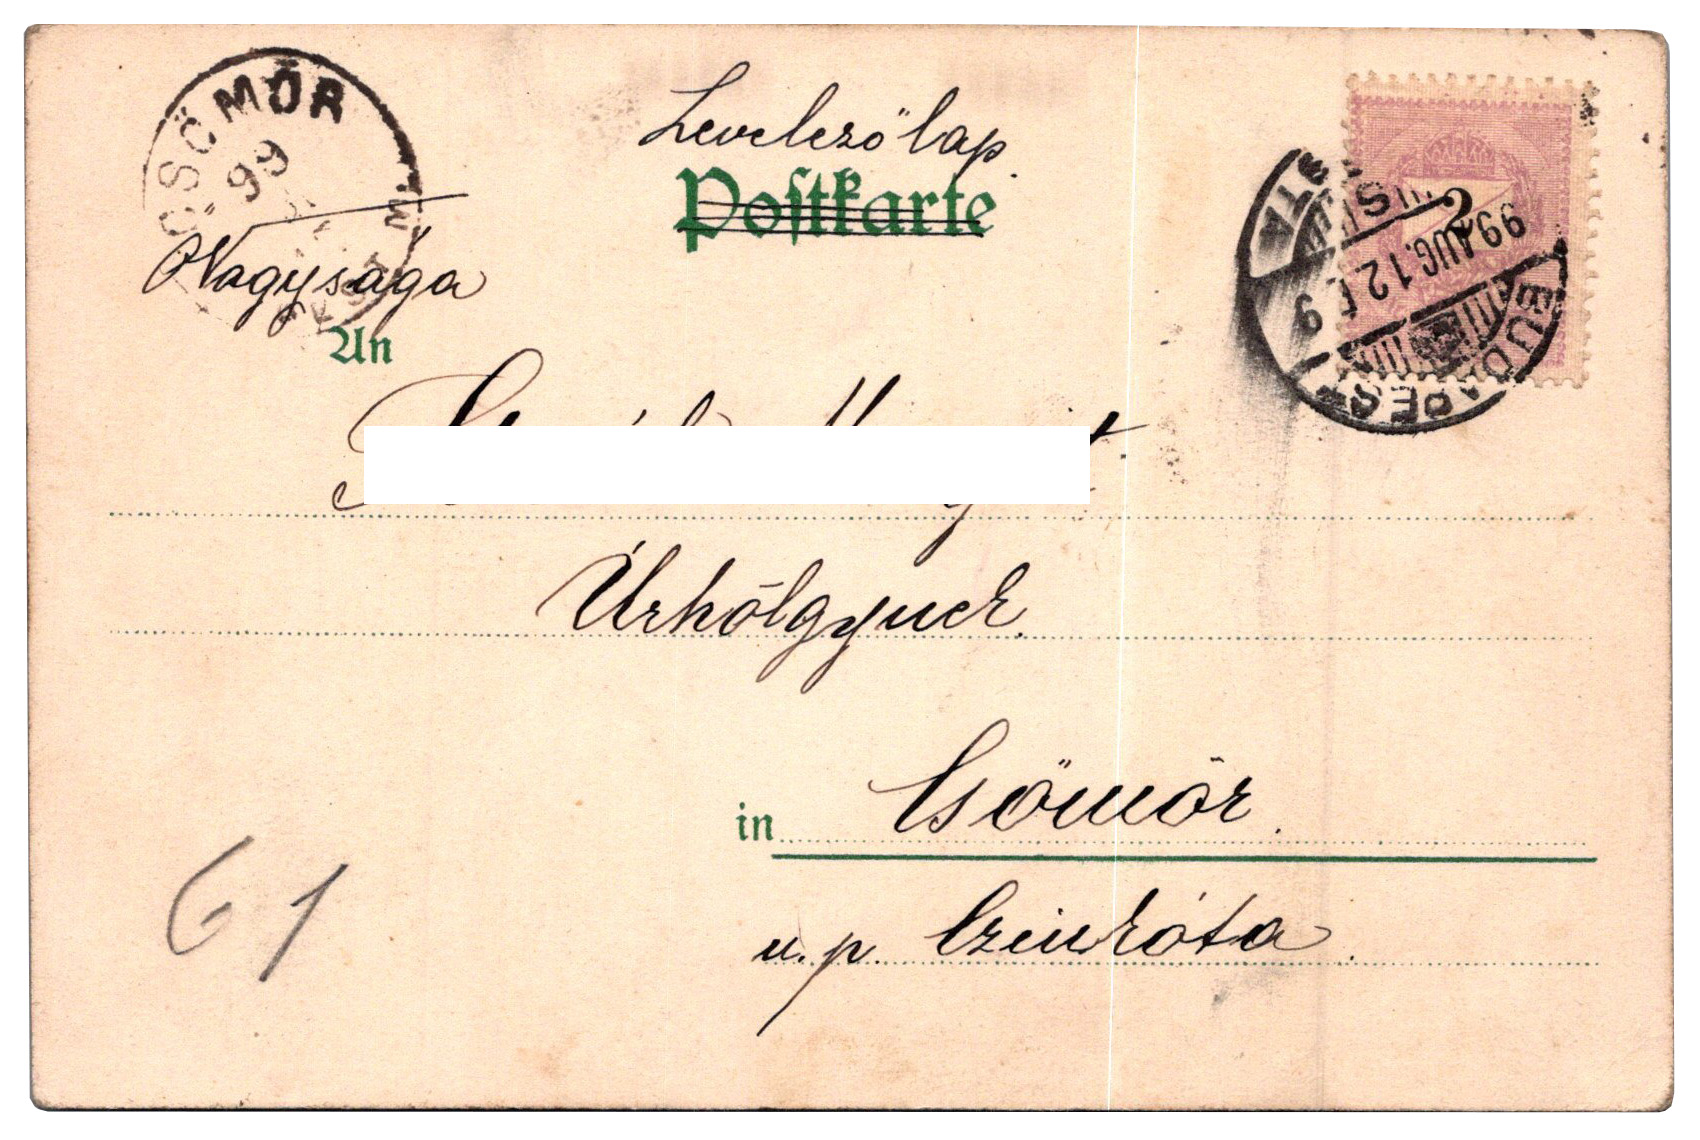 CSÖMÖR
99
Levelező lap
Postkarte
2
BUDAPEST
99 AUG. 12 E. 9
Nagysága
An
Úrhölgynek
in Csömör.
u. p. Czinkóta.
61